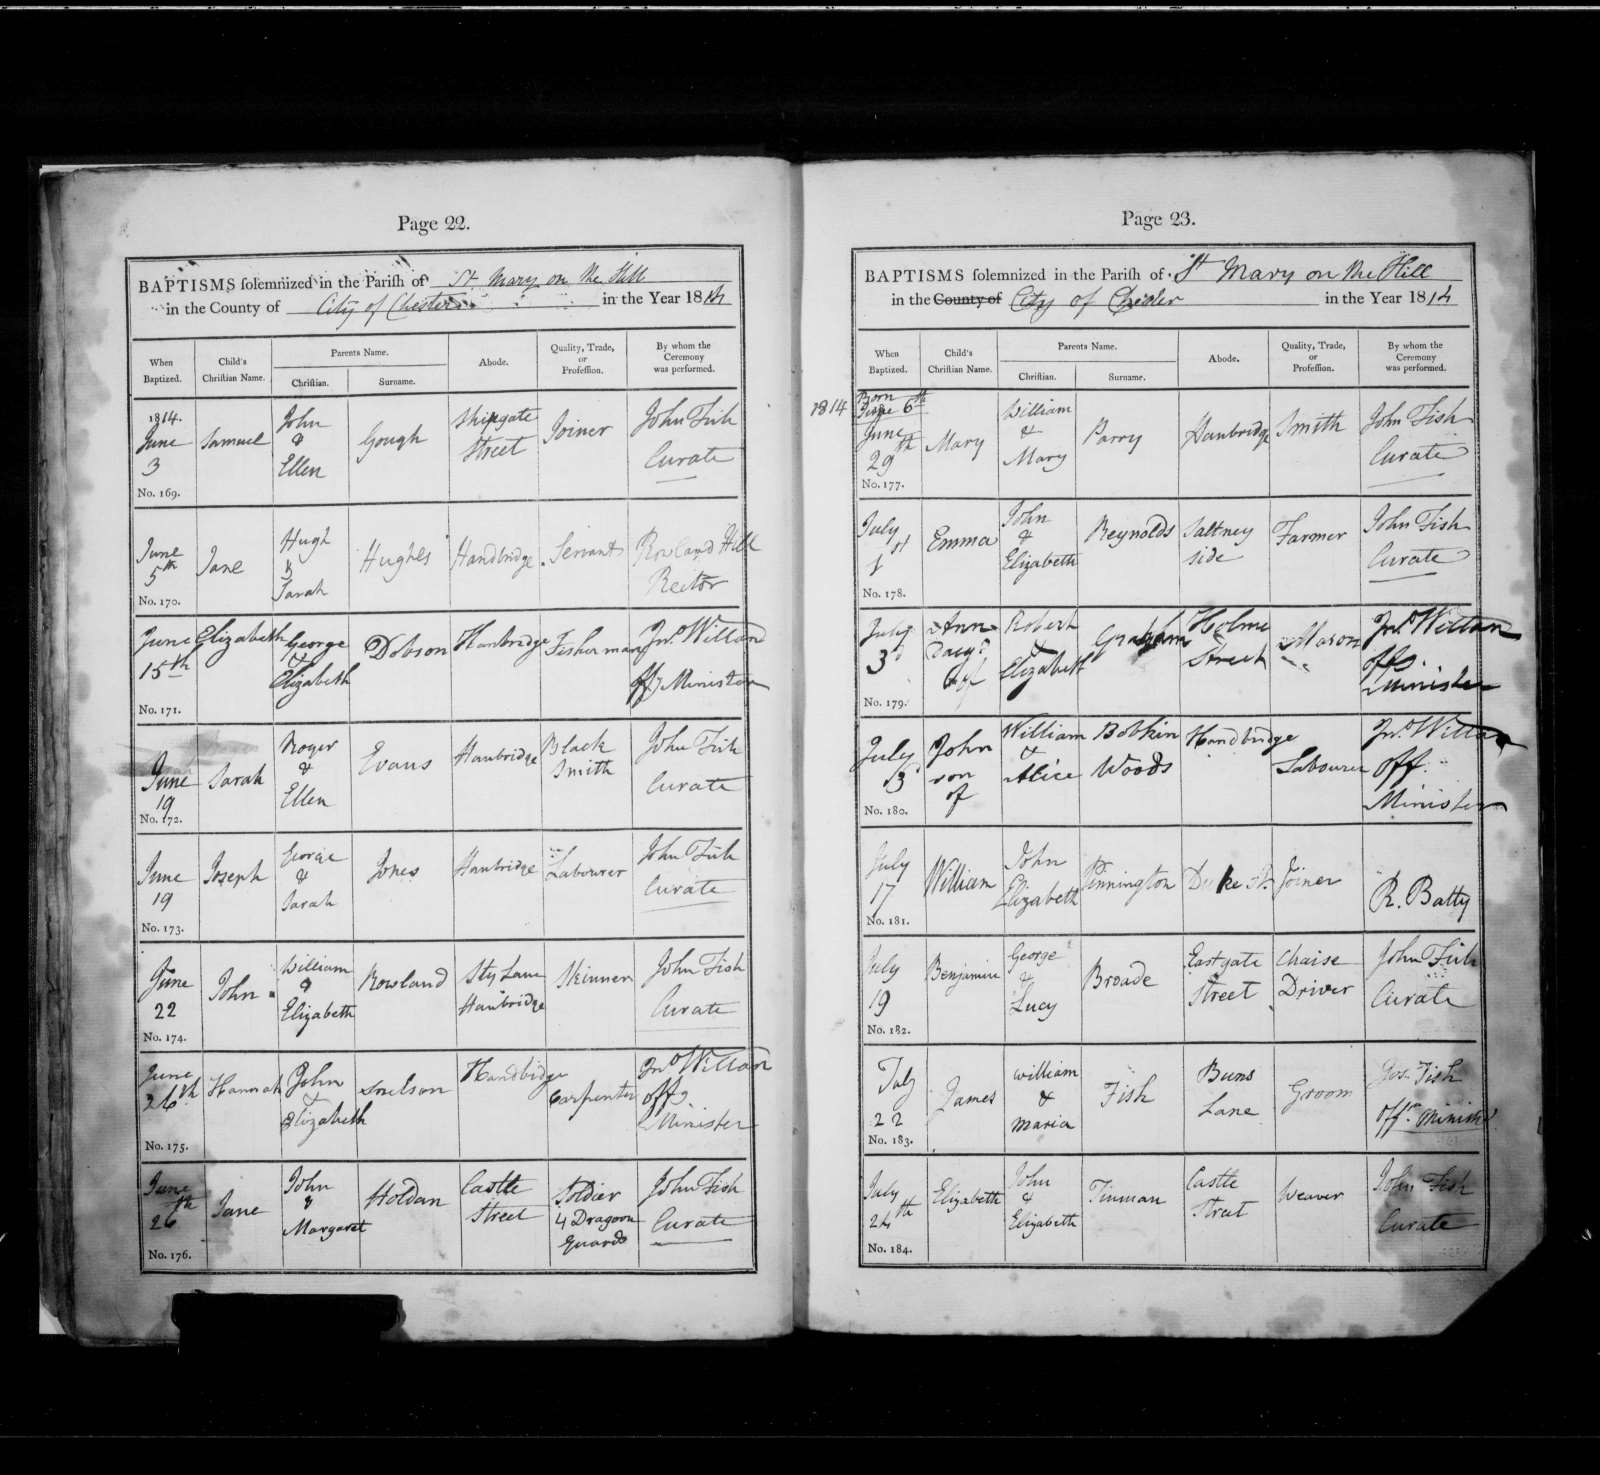 Page 22.
BAPTISMS solemnized in the Parish of St. Mary on the Hill
in the County of City of Chester in the Year 1814
When Baptized.
Child's Christian Name.
Parents Name.
Christian.
Surname.
Abode.
Quality, Trade, or Profession.
By whom the Ceremony was performed.
1814. June 3 Samuel John & Ellen Gough Shipgate Street Joiner John Fish Curate
No. 169.
June 5th Jane Hugh & Sarah Hughes Handbridge Servant Rowland Hill Rector
No. 170.
June 15th Elizabeth George & Elizabeth Dobson Hanbridge Fisherman Jno. Willan Offg Minister
No. 171.
June 19 Sarah Roger & Ellen Evans Hanbridge Black Smith John Fish Curate
No. 172.
June 19 Joseph George & Sarah Jones Hanbridge Labourer John Fish Curate
No. 173.
June 22 John William & Elizabeth Rowland Sty Lane Hanbridge Skinner John Fish Curate
No. 174.
June 26th Hannah John & Elizabeth Snelson Handbidge Carpenter Jno Willan Offg Minister
No. 175.
June 26th Jane John & Margaret Holdan Castle Street Soldier 4 Dragoon Guards John Fish Curate
No. 176.
Page 23.
BAPTISMS solemnized in the Parish of St Mary on the Hill
in the County of City of Chester in the Year 1814
When Baptized.
Child's Christian Name.
Parents Name.
Christian.
Surname.
Abode.
Quality, Trade, or Profession.
By whom the Ceremony was performed.
1814 Born June 6th June 29th Mary William & Mary Parry Hanbridge Smith John Fish Curate
No. 177.
July 1st Emma John & Elizabeth Reynolds Saltney side Farmer John Fish Curate
No. 178.
July 3d Ann Daugr of Robert & Elizabeth Graham Holme Street Mason Jno. Willan Offg. Minister
No. 179.
July 13 John son of William & Alice Bobkin Woods Handbridge Labourer Jno. Willan Off. Minister
No. 180.
July 17 William John Elizabeth Pinnington Duke St. Joiner R. Batty
No. 181.
July 19 Benjamin George & Lucy Broade Eastgate Street Chaise Driver John Fish Curate
No. 182.
July 22 James William & Maria Fish Buns Lane Groom Jos. Fish Offg. Minister
No. 183.
July 24th Elizabeth John & Elizabeth Tinman Castle Street Weaver John Fish Curate
No. 184.